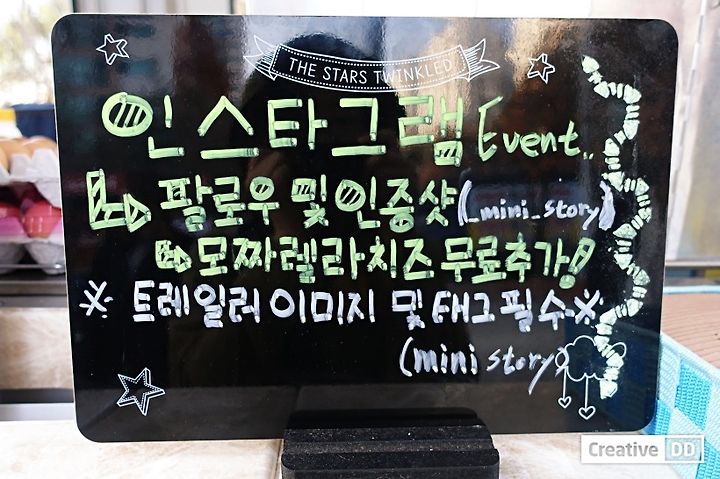 THE STARS TWINKLED
인스타그램 Event..
팔로우 및 인증샷(_mini_story)
모짜렐라치즈 무료추가!
※ 트레일러 이미지 및 태그 필수※
(mini story)
Creative DD